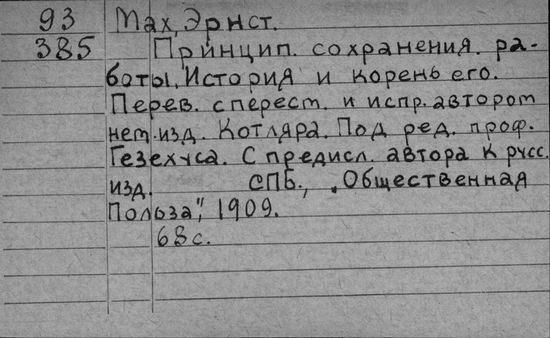 93 Мах, Эрнст.
385 Принцип. сохранения. ра-
боты. История и корень его.
Перев. с перест. и испр. автором
нем. изд. Котляра. Под ред. проф.
Гезехуса. С предисл. автора к русс.
изд. СПБ., „Общественная
Польза", 1909.
68 с.